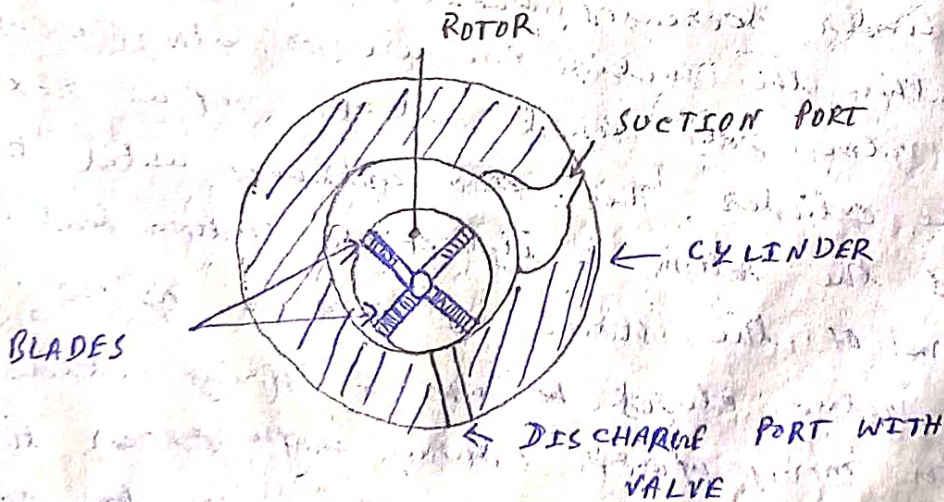 ROTOR
SUCTION PORT
CYLINDER
BLADES
DISCHARGE PORT WITH
VALVE